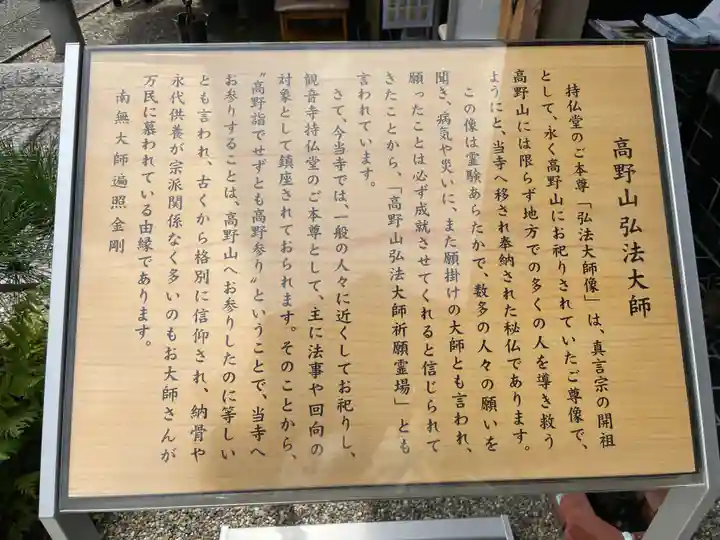 高野山弘法大師
持仏堂のご本尊「弘法大師像」は、真言宗の開祖
として、永く高野山にお祀りされていたご尊像で、
高野山には限らず地方での多くの人を導き救う
ようにと、当寺へ移され奉納された秘仏であります。
この像は霊験あらたかで、数多の人々の願いを
聞き、病気や災いに、また願掛けの大師とも言われ、
願ったことは必ず成就させてくれると信じられて
きたことから、「高野山弘法大師祈願霊場」とも
言われています。
さて、今当寺では、一般の人々に近くしてお祀りし、
観音寺持仏堂のご本尊として、主に法事や回向の
対象として鎮座されておられます。そのことから、
〝高野詣でせずとも高野参り〟ということで、当寺へ
お参りすることは、高野山へお参りしたのに等しい
とも言われ、古くから格別に信仰され、納骨や
永代供養が宗派関係なく多いのもお大師さんが
万民に慕われている由縁であります。
南無大師遍照金剛